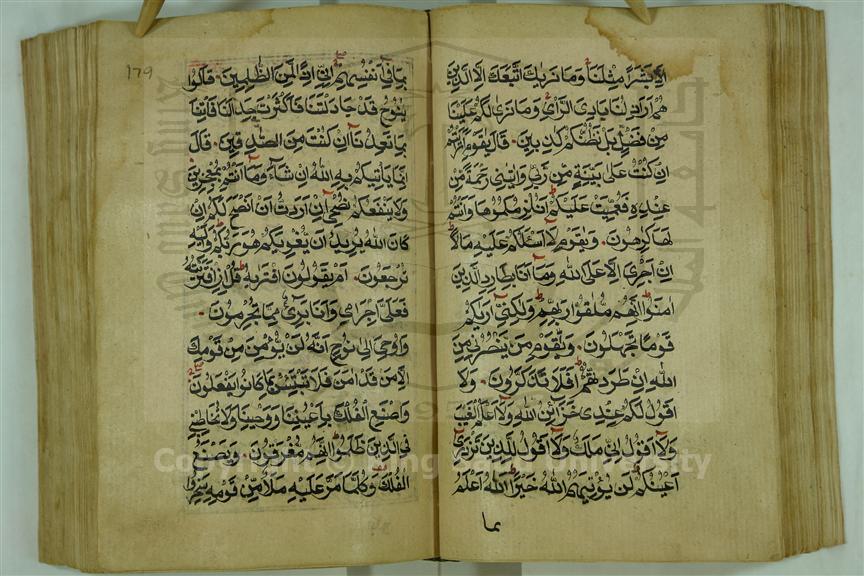 الا بشرا مثلنا وما نريك اتبعك الا الذين
هم اراذلنا بادى الراى وما نرى لكم علينا
من فضل بل نظنكم كذبين قال يقوم ارءيتم
ان كنت على بينة من ربى واتنى رحمة من
عنده فعميت عليكم انلزمكموها وانتم
لها كرهون ويقوم لا اسئلكم عليه مالا
ان اجرى الا على الله وما انا بطارد الذين
امنوا انهم ملقوا ربهم ولكنى اريكم
قوما تجهلون ويقوم من ينصرنى من
الله ان طردتهم افلا تذكرون ولا
اقول لكم عندى خزائن الله ولا اعلم الغيب
ولا اقول انى ملك ولا اقول للذين تزدرى
اعينكم لن يؤتيهم الله خيرا الله اعلم
بما
179
بما فى انفسهم انى اذا لمن الظلمين قالوا
ينوح قد جادلتنا فاكثرت جدالنا فاتنا
بما تعدنا ان كنت من الصدقين قال
انما ياتيكم به الله ان شاء وما انتم بمعجزين
ولا ينفعكم نصحى ان اردت ان انصح لكم ان
كان الله يريد ان يغويكم هو ربكم واليه
ترجعون ام يقولون افتريه قل ان افتريته
فعلى اجرامى وانا برىء مما تجرمون
واوحى الى نوح انه لن يؤمن من قومك
الا من قد امن فلا تبتئس بما كانوا يفعلون
واصنع الفلك باعيننا ووحينا ولا تخاطبنى
فى الذين ظلموا انهم مغرقون ويصنع
الفلك وكلما مر عليه ملا من قومه سخروا